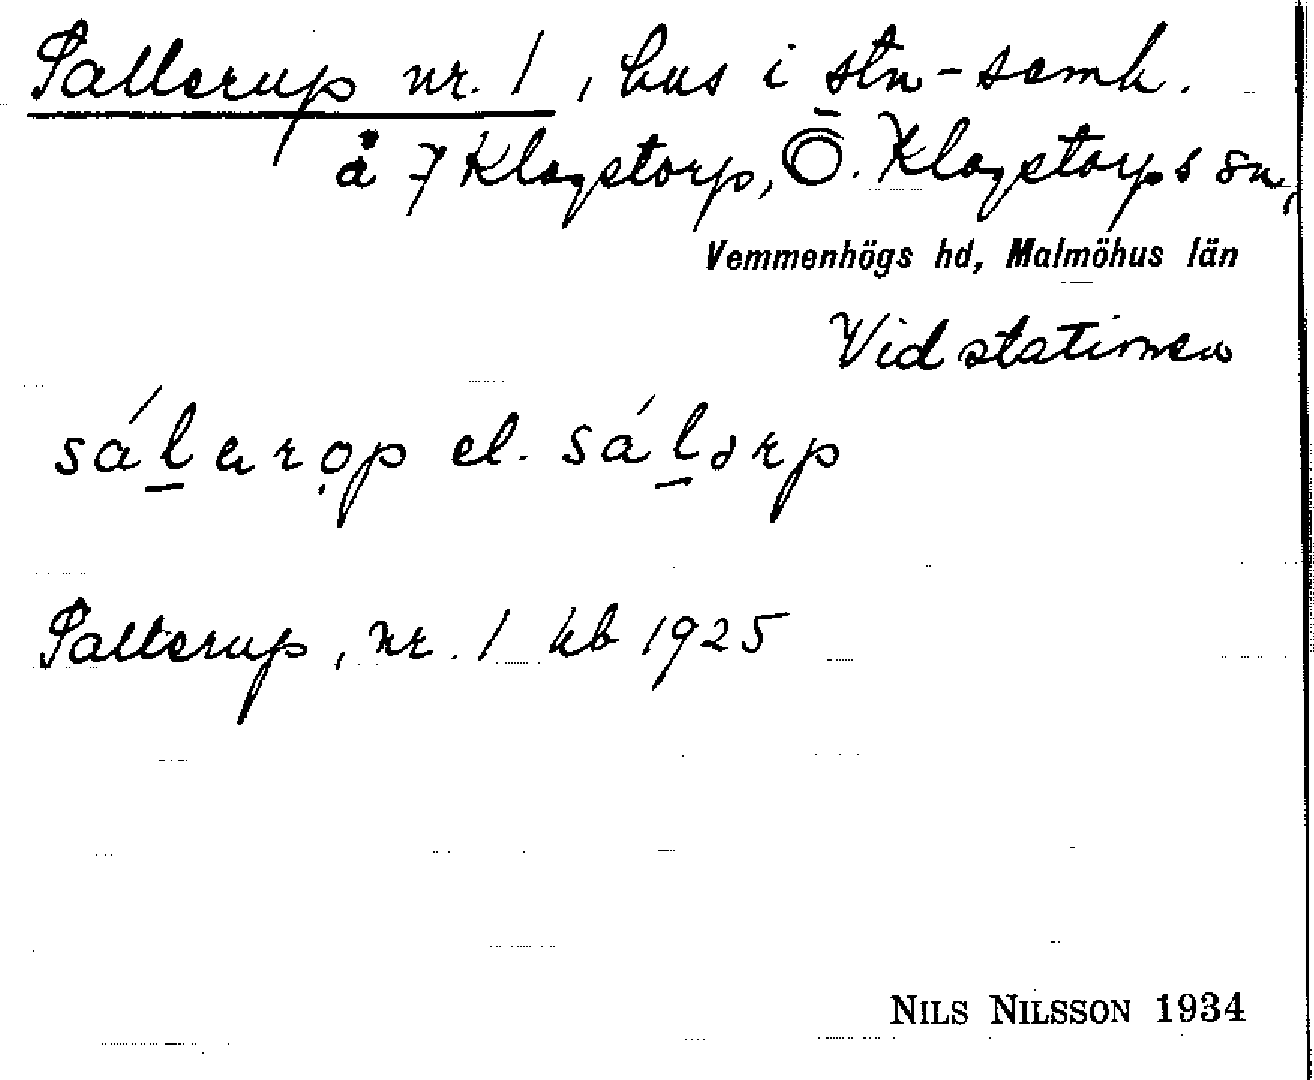 Sallerup nr. 1, hus i stn-samh.
å 7 Klagstorp, Ö. Klagstorps sn,
Vemmenhögs hd, Malmöhus län
Vid stationen
sálarọp el. sálərp
Sallerup, nr. 1 kb 1925
NILS NILSSON 1934